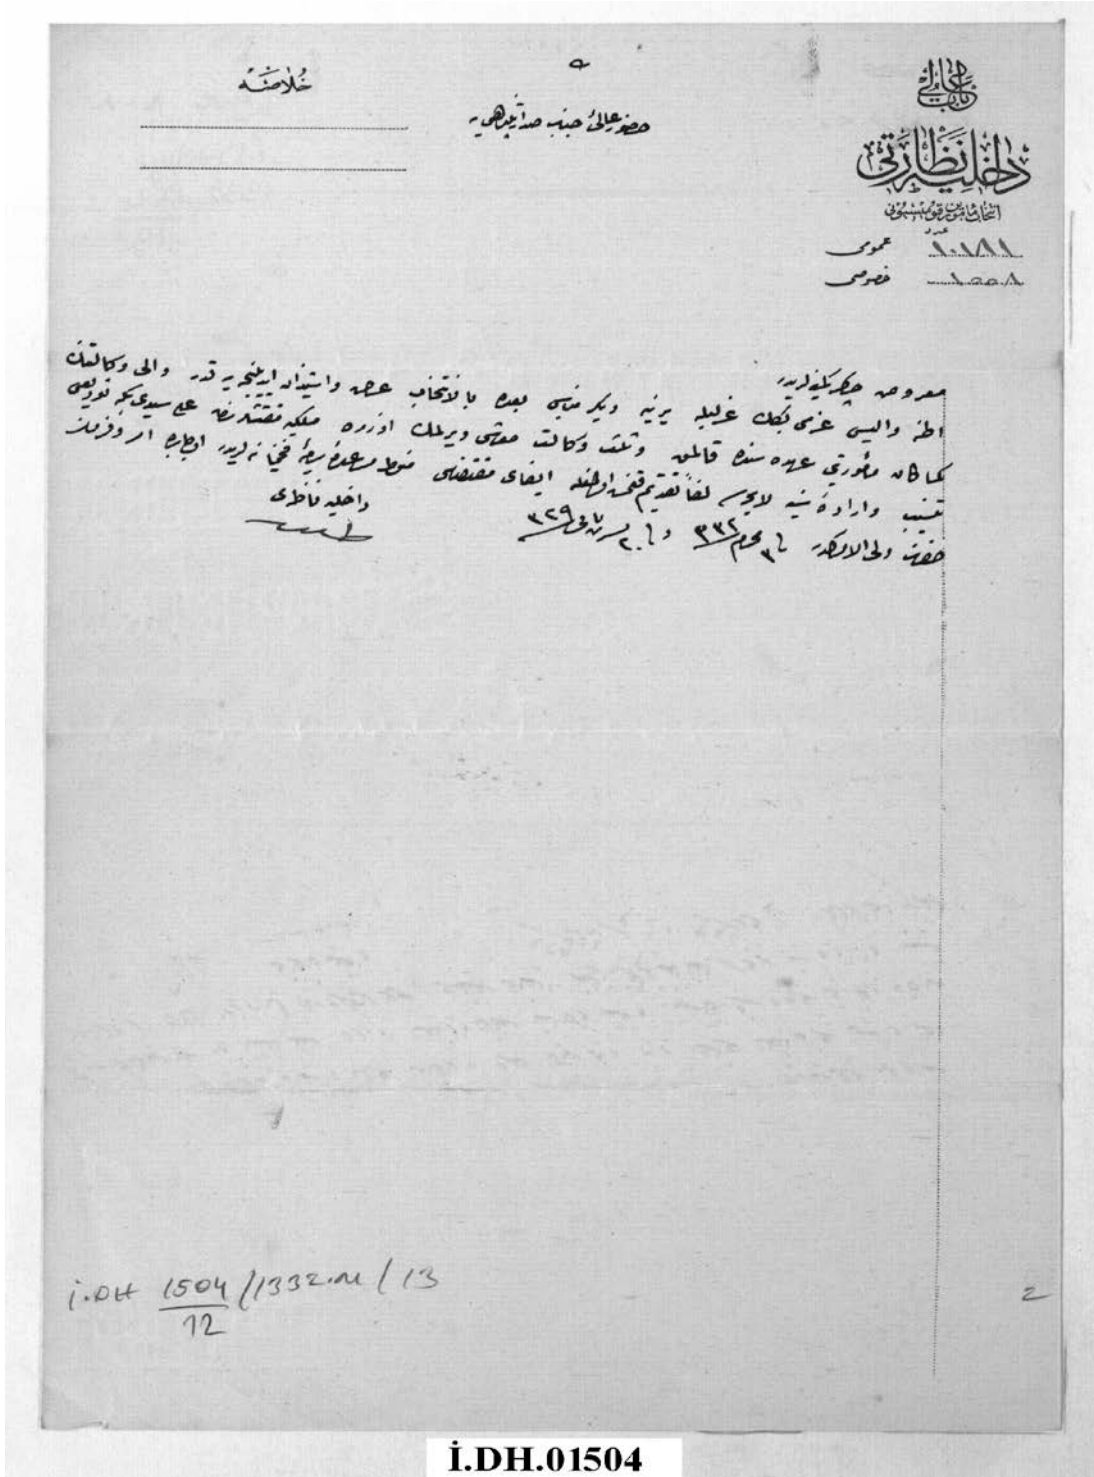 باب عالی
داخلیه نظارتی
انتخاب مأمورین قومیسیونی
عدد
عمومی
خصوصی
خلاصه
حضور عالئ جناب صدارتپناهی یه
معروض چاكر كمینه لریدر
اطنه والیسی بكك عزلیله یرینه دیكر مناسبی بعده بالانتخاب عرض و استیذان ایدیلنجیه قدر والی وكالتنك
كماكان مأموریتی عهده سنده قالمق و وكالت معاشی ویرلمك اوزره ملكیه مفتشلرندن علی سیدی بكه تودیعی
تنسیب و اراده سنیه لایحه سی لفاً تقدیم قلنمش اولمغله ایفای مقتضاسی منوط مساعده فخیمانه لریدر اولبابده امر و فرمان
حضرت ولی الامركدر فی ٣ محرم ٣٣٢ و فی ٢٠ تشرین ثانی ٣٢٩
داخلیه ناظری
طلعت
İ.DH 1504/1332.M/13
12
2
İ.DH.01504